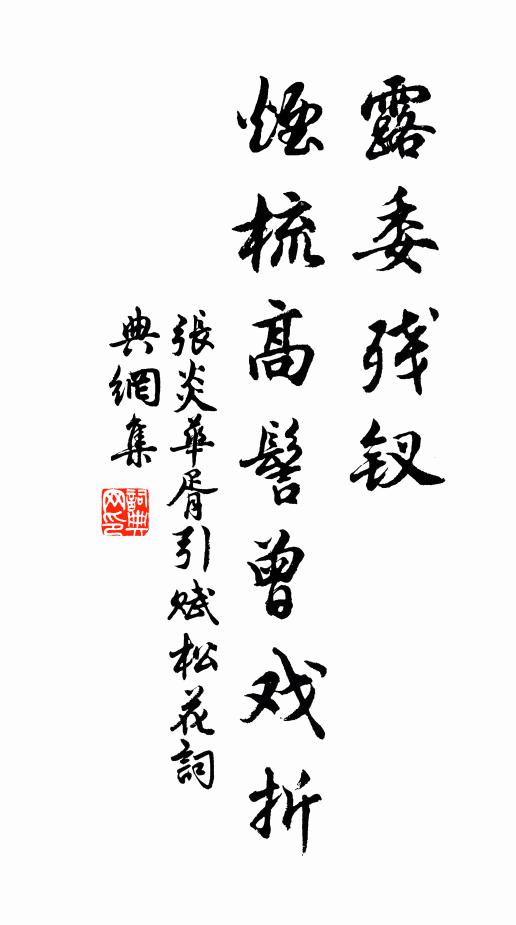 露委残钗
煙梳高髻曾戏折
張炎華胥引賦松花詞
典網集
詞典
网印